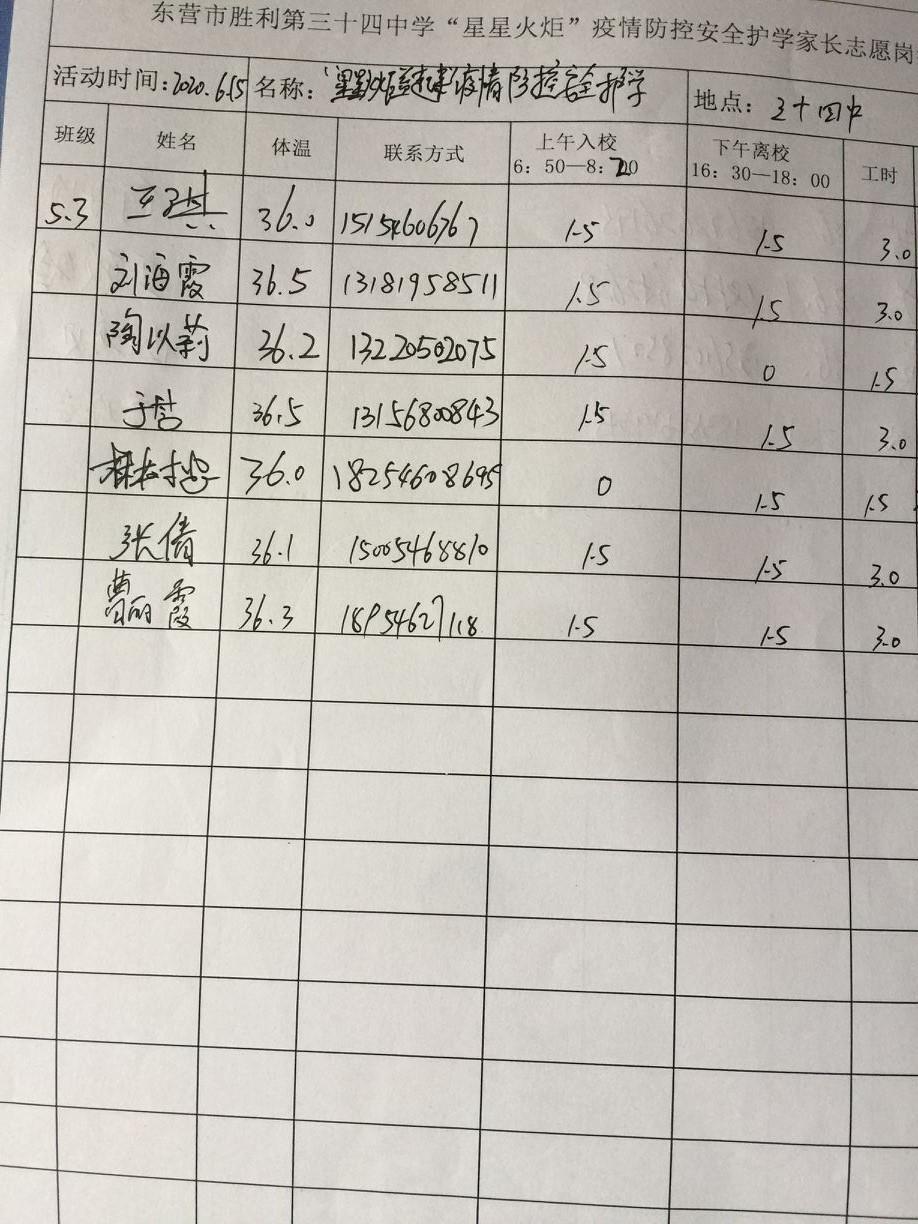 东营市胜利第三十四中学“星星火炬”疫情防控安全护学家长志愿岗
活动时间:2020.6.15 名称: 疫情防控安全护学 地点: 三十四中
班级 姓名 体温 联系方式 上午入校 6:50—8:20 下午离校 16:30—18:00 工时
5.3 36.0 15154606767 1.5 1.5 3.0
刘海霞 36.5 13181958511 1.5 1.5 3.0
陶以莉 36.2 13220502075 1.5 0 1.5
36.5 13156800843 1.5 1.5 3.0
36.0 18254608695 0 1.5 1.5
张倩 36.1 15005468810 1.5 1.5 3.0
曹丽霞 36.3 1.5 1.5 3.0